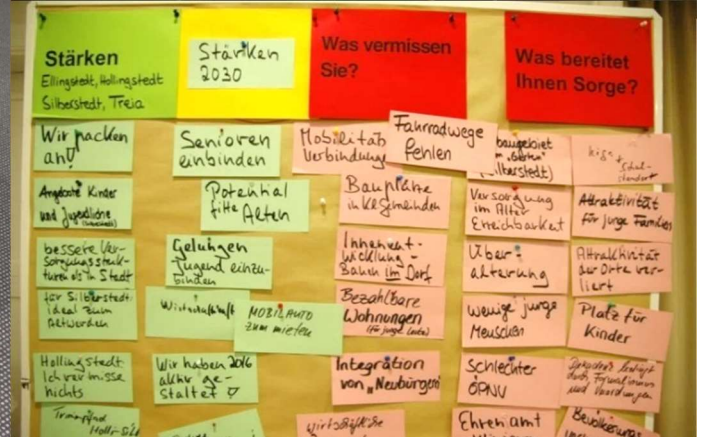 Stärken
Ellingstedt, Hollingstedt
Silberstedt, Treia
Wir packen
an!
Angebote Kinder
und Jugendliche
bessere Ver-
sorgungsstruk-
turen als in Stadt
für Silberstedt:
ideal zum
Altwerden
Hollingstedt
Ich vermisse
nichts
Stärken
2030
Senioren
einbinden
Potential
fitte Alten
Gelungen
Jugend einzu-
binden
Wirtschaftskraft
MOBILAUTO
zum mieten
Wir haben 2016
aktiv ge-
staltet
Was vermissen
Sie?
Mobilität
Verbindung
Fahrradwege
fehlen
Bauplätze
in Kl Gemeinden
Innenent-
wicklung -
Bauen im Dorf
Bezahlbare
Wohnungen
(für junge Leute)
Integration
von "Neubürgern"
wirtschaftliche
Was bereitet
Ihnen Sorge?
baugebiet
Silberstedt)
Versorgung
im Alter
Erreichbarkeit
Über-
alterung
wenige junge
Menschen
Schlechter
ÖPNV
Ehrenamt
Schul-
standort
Attraktivität
für junge Familien
Attraktivität
der Orte ver-
liert
Platz für
Kinder
Bevölkerungs